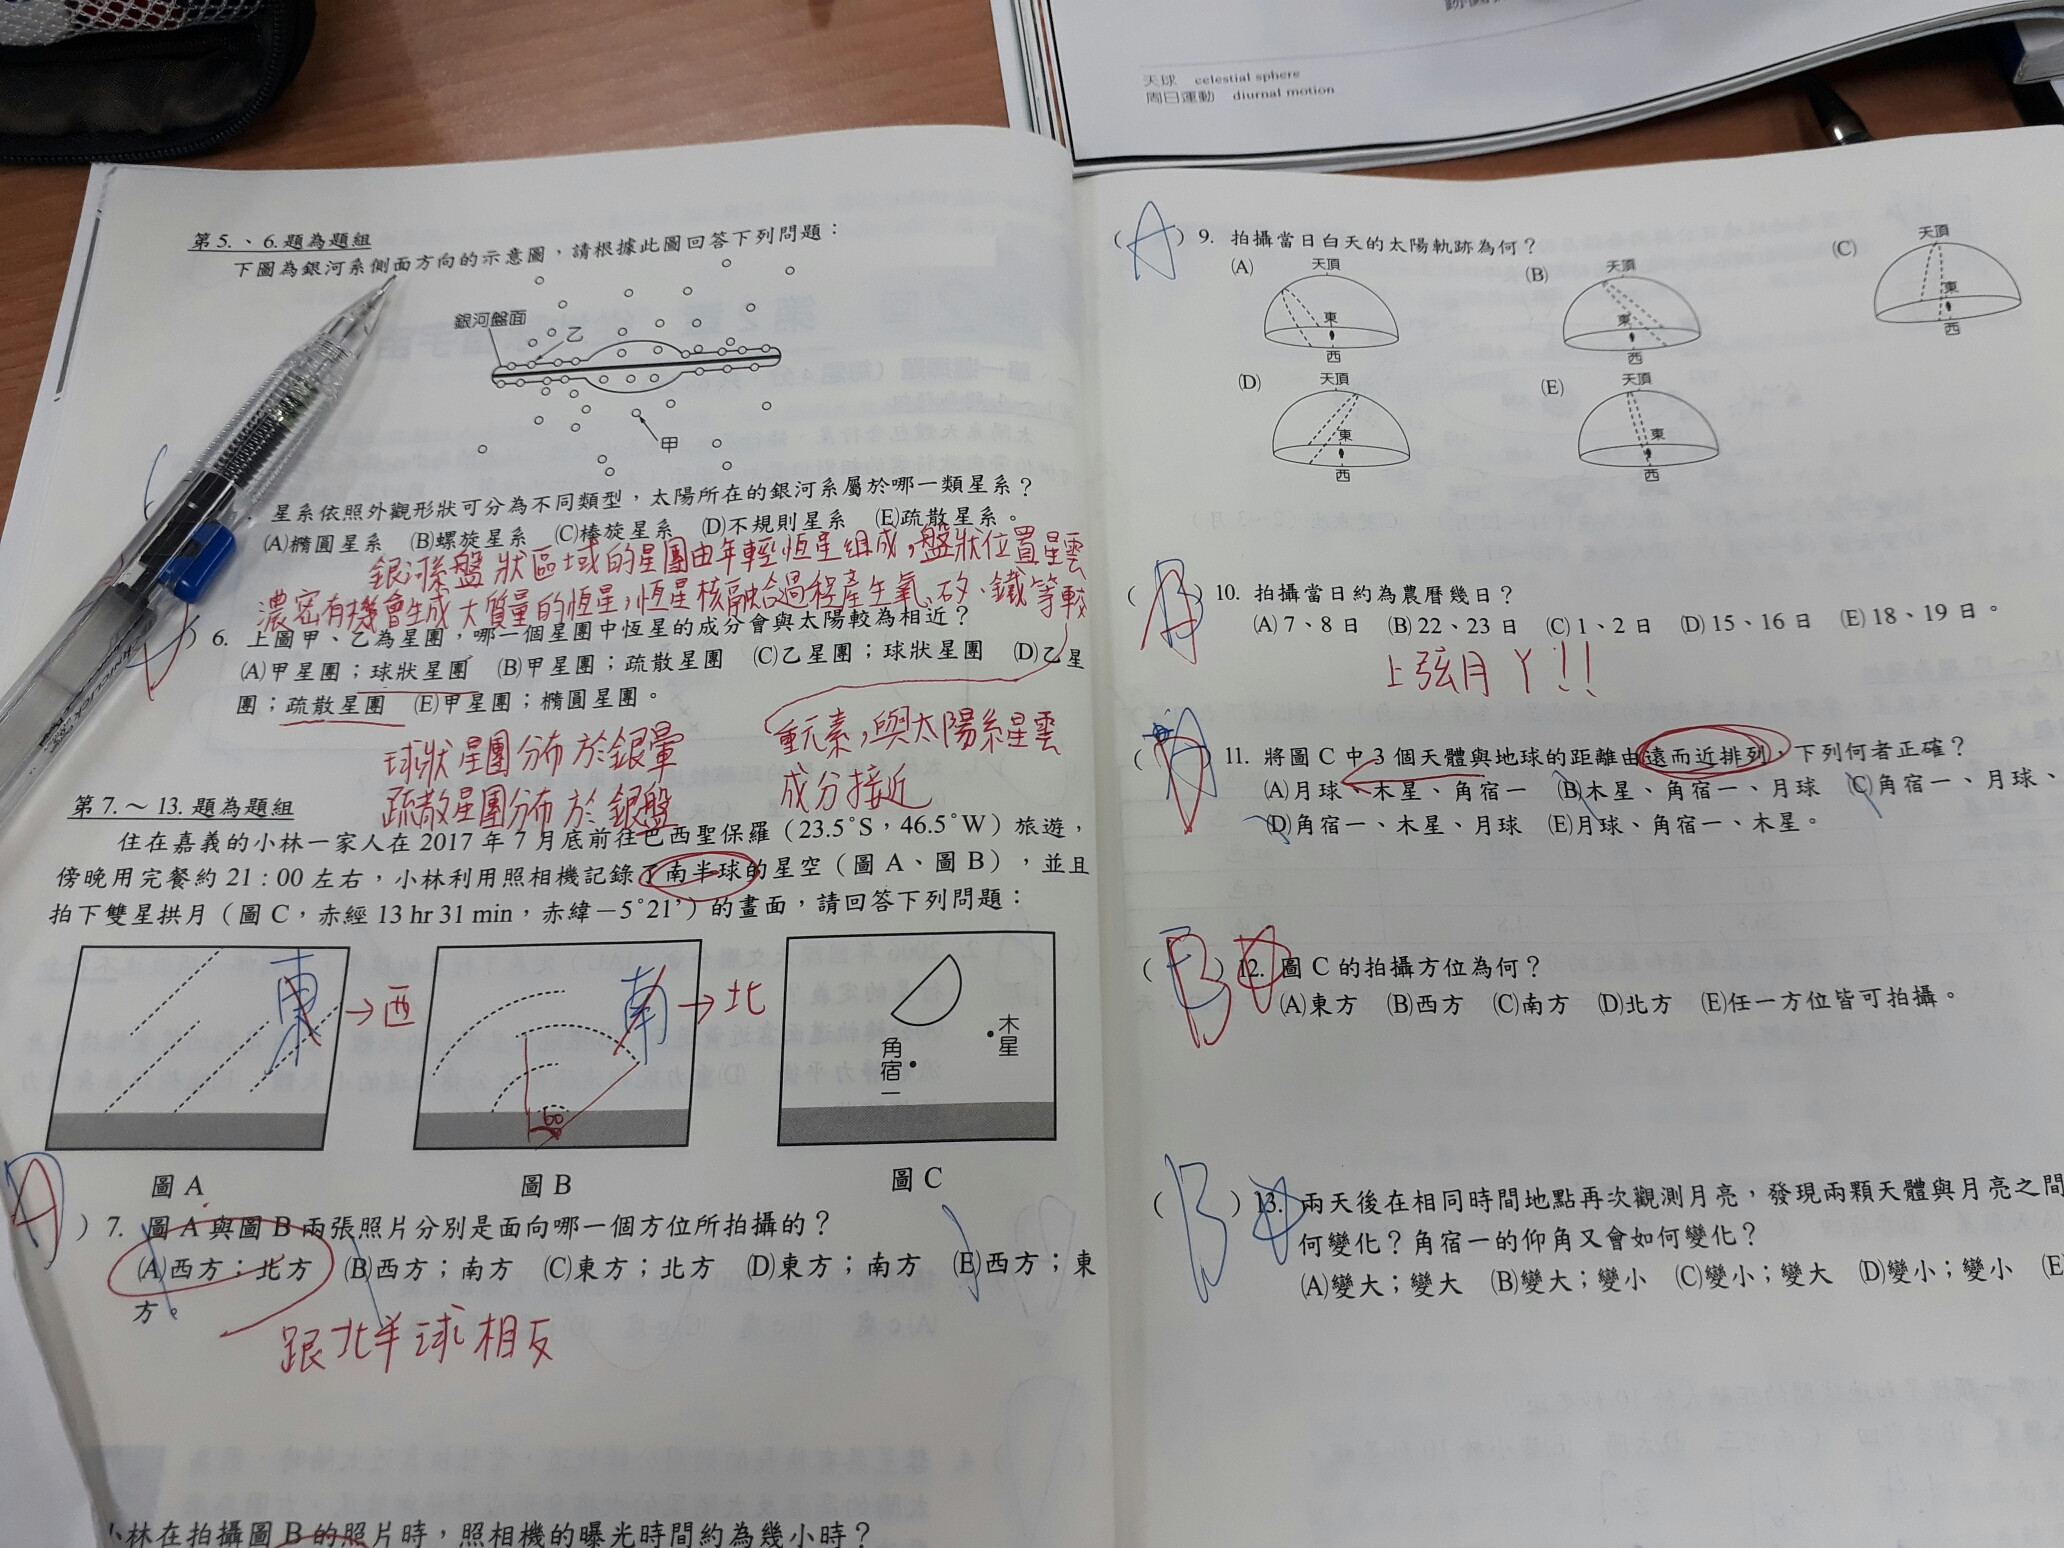 天球 celestial sphere
周日運動 diurnal motion
第5.、6.題為題組
下圖為銀河系側面方向的示意圖，請根據此圖回答下列問題：
銀河盤面
乙
甲
星系依照外觀形狀可分為不同類型，太陽所在的銀河系屬於哪一類星系？
(A)橢圓星系 (B)螺旋星系 (C)棒旋星系 (D)不規則星系 (E)疏散星系。
銀河系盤狀區域的星團由年輕恆星組成，盤狀位置星雲
濃密有機會生成大質量的恆星，恆星核融合過程產生氧、矽、鐵等較
) 6. 上圖甲、乙為星團，哪一個星團中恆星的成分會與太陽較為相近？
(A)甲星團；球狀星團 (B)甲星團；疏散星團 (C)乙星團；球狀星團 (D)乙星
團；疏散星團 (E)甲星團；橢圓星團。
重元素，與太陽系星雲
成分接近
球狀星團分布於銀暈
疏散星團分布於銀盤
第7.～13.題為題組
住在嘉義的小林一家人在2017年7月底前往巴西聖保羅（23.5°S，46.5°W）旅遊，
傍晚用完餐約21：00左右，小林利用照相機記錄了南半球的星空（圖A、圖B），並且
拍下雙星拱月（圖C，赤經13 hr 31 min，赤緯－5°21’）的畫面，請回答下列問題：
東→西
南→北
60
木星
角宿一
圖A
圖B
圖C
(A) 7. 圖A與圖B兩張照片分別是面向哪一個方位所拍攝的？
(A)西方；北方 (B)西方；南方 (C)東方；北方 (D)東方；南方 (E)西方；東
方。
跟北半球相反
小林在拍攝圖B的照片時，照相機的曝光時間約為幾小時？
(A) 9. 拍攝當日白天的太陽軌跡為何？
(A) 天頂 東 西
(B) 天頂 東 西
(C) 天頂 東 西
(D) 天頂 東 西
(E) 天頂 東 西
( ) 10. 拍攝當日約為農曆幾日？
(A) 7、8日 (B) 22、23日 (C) 1、2日 (D) 15、16日 (E) 18、19日。
上弦月ㄚ!!
( ) 11. 將圖C中3個天體與地球的距離由遠而近排列，下列何者正確？
(A)月球、木星、角宿一 (B)木星、角宿一、月球 (C)角宿一、月球、
(D)角宿一、木星、月球 (E)月球、角宿一、木星。
(B) 12. 圖C的拍攝方位為何？
(A)東方 (B)西方 (C)南方 (D)北方 (E)任一方位皆可拍攝。
(B) 13. 兩天後在相同時間地點再次觀測月亮，發現兩顆天體與月亮之間
何變化？角宿一的仰角又會如何變化？
(A)變大；變大 (B)變大；變小 (C)變小；變大 (D)變小；變小 (E